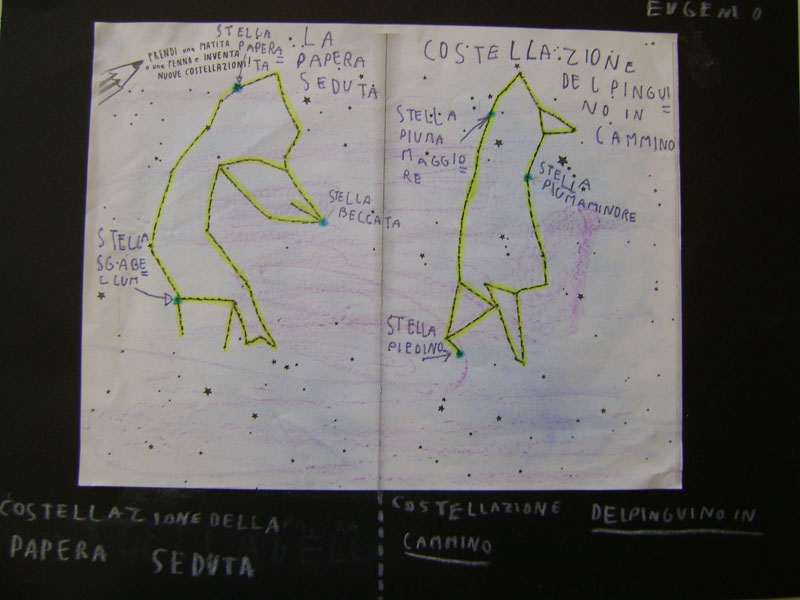 EUGENIO
PRENDI una MATITA
o una PENNA e INVENTA
NUOVE COSTELLAZIONI!
STELLA
PAPERA
TA=
LA
PAPERA
SEDUTA
STELLA
BECCATA
STELLA
SGABE=
LLUM
COSTELLAZIONE
DEL PINGUI=
NO IN
CAMMINO
STELLA
PIUMA
MAGGIO=
RE
STELLA
PIUMAMINORE
STELLA
PIEDINO
COSTELLAZIONE DELLA
PAPERA SEDUTA
COSTELLAZIONE DELPINGUINO IN
CAMMINO